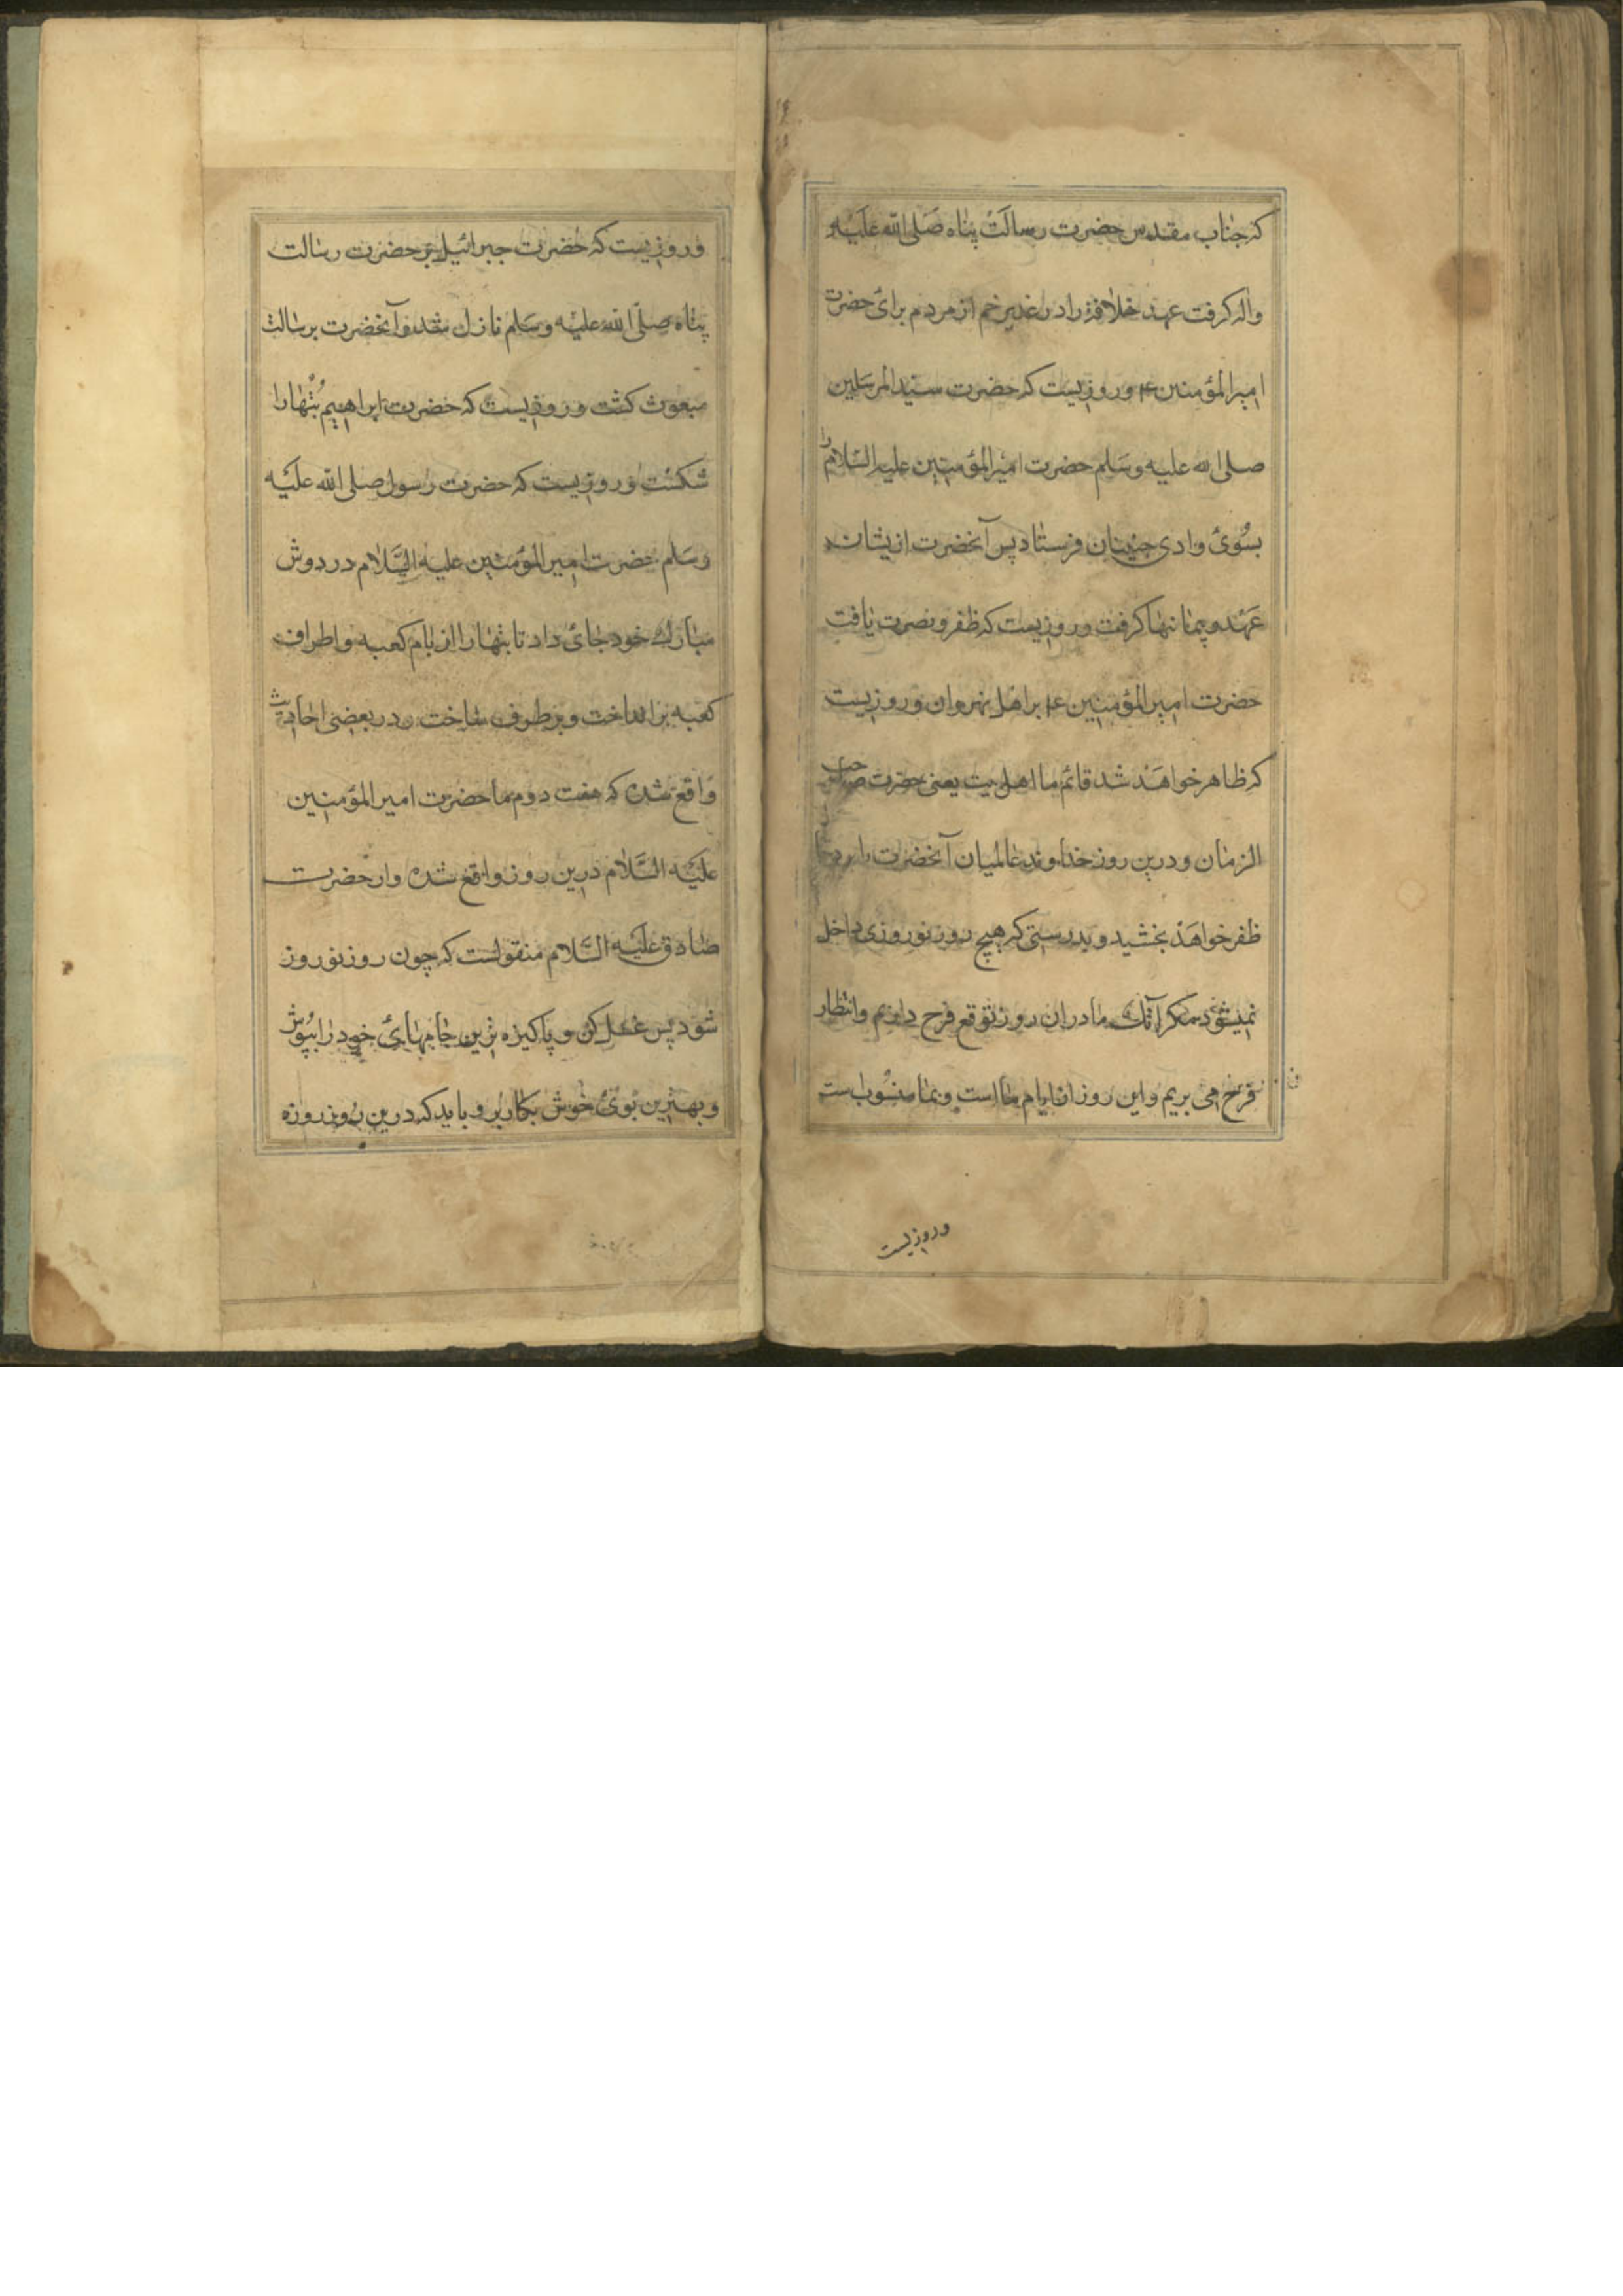 که جناب مقدس حضرت رسالت پناه صلی الله علیه
واله کرفت عهد خلافة را در غدیر خم از مردم برائ حضرت
امیرالمؤمنین ۴ و روزیست که حضرت سیدالمرسلین
صلی الله علیه وسلم حضرت امیرالمؤمنین علیه السلام را
بسوئ وادی جنیان فرستاد پس آنحضرت ازیشان
عهد و پیمانها کرفت و روزیست که ظفر و نصرت یافت
حضرت امیرالمؤمنین ۴ بر اهل نهروان و روزیست
که ظاهر خواهند شد قائم ما اهل بیت یعنی حضرت صاحب
الزمان و درین روز خداوند عالمیان آنحضرت را بر
ظفر خواهد بخشید و بدرستی که هیچ روز نوروزی داخل
نمیشود مکر آنکه ما دران روز توقع فرح داریم وانتظار
فرح می بریم واین روز از ایام ما است وبما منسوبست
وروزیست
وروزیست که حضرت جبرائیل بر حضرت رسالت
پناه صلی الله علیه وسلم نازل شد وآنحضرت برسالت
مبعوث کشت وروزیست که حضرت ابراهیم بتهارا
شکست وروزیست که حضرت رسول صلی الله علیه
وسلم حضرت امیرالمؤمنین علیه السلام در دوش
مبارک خود جائ داد تا بتهارا از بام کعبه واطراف
کعبه بر انداخت وبرطرف ساخت ودر بعضی احادیث
واقع شده که هفت دوم حضرت امیرالمؤمنین
علیه السلام درین روز واقع شده واز حضرت
صادق علیه السلام منقولست که چون روز نوروز
شود پس غسل کن و پاکیزه ترین جامهائ خود را بپوش
وبهترین بوئ خوش بکار بر و باید که درین روز روزه